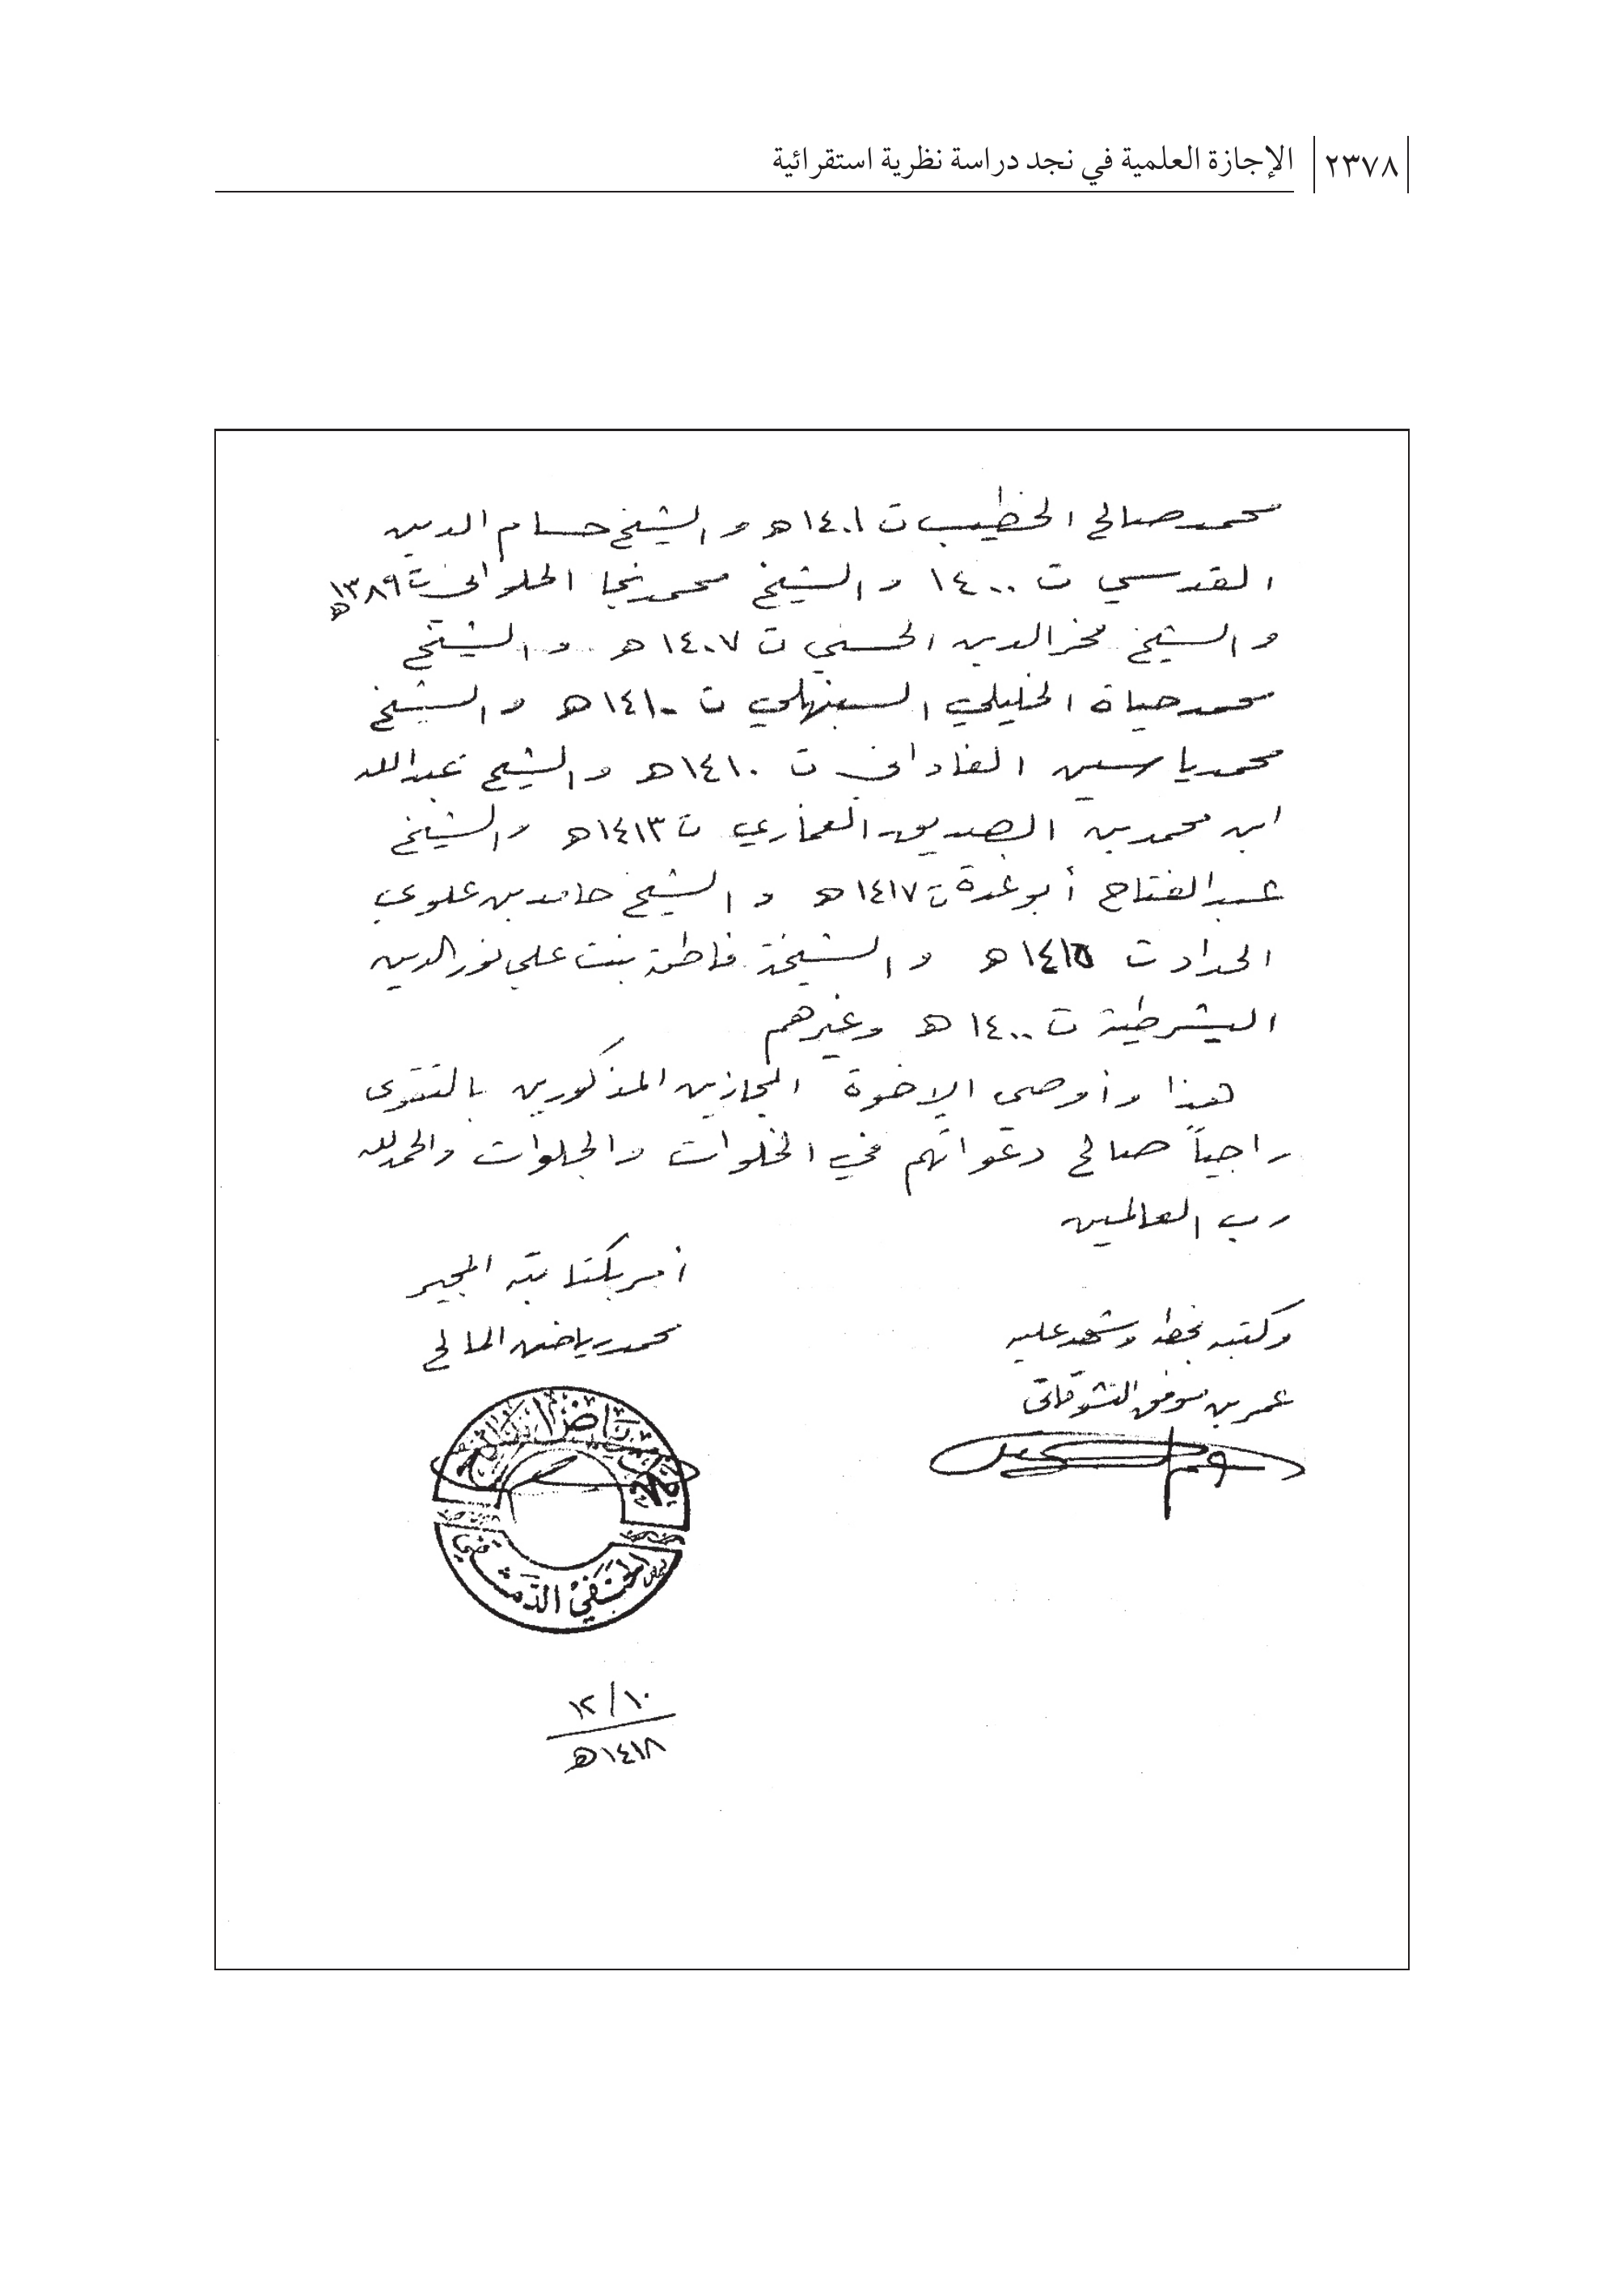 ٢٣٧٨ الإجازة العلمية في نجد دراسة نظرية استقرائية
محمد صالح الخطيب ت ١٤٠١ هـ والشيخ حسام الدين
القدسي ت ١٤٠٠ والشيخ محمد نجا الحلواني ت ١٣٨٩ هـ
والشيخ فخر الدين الحسني ت ١٤٠٧ هـ والشيخ
محمد حياة الخليلي السنبهلي ت ١٤١٠ هـ والشيخ
محمد ياسين الفاداني ت ١٤١٠ هـ والشيخ عبد الله
ابن محمد بن الصديق الغماري ت ١٤١٣ هـ والشيخ
عبد الفتاح أبو غدة ت ١٤١٧ هـ والشيخ حامد بن علوي
الحداد ت هـ والشيخة فاطمة بنت علي نور الدين
اليشرطية ت ١٤٠٠ هـ وغيرهم
هذا وأوصي الإخوة المجازين المذكورين بالتقوى
راجياً صالح دعواتهم في الخلوات والجلوات والحمد لله
رب العالمين
أمر بكتابته المجيز
محمد رياض المالح
وكتبه بخطه وشهد عليه
عمر بن موفق النشوقاتي
محمد رياض المالح
الحنفي الدمشقي
١٠/١٢
١٤١٨ هـ